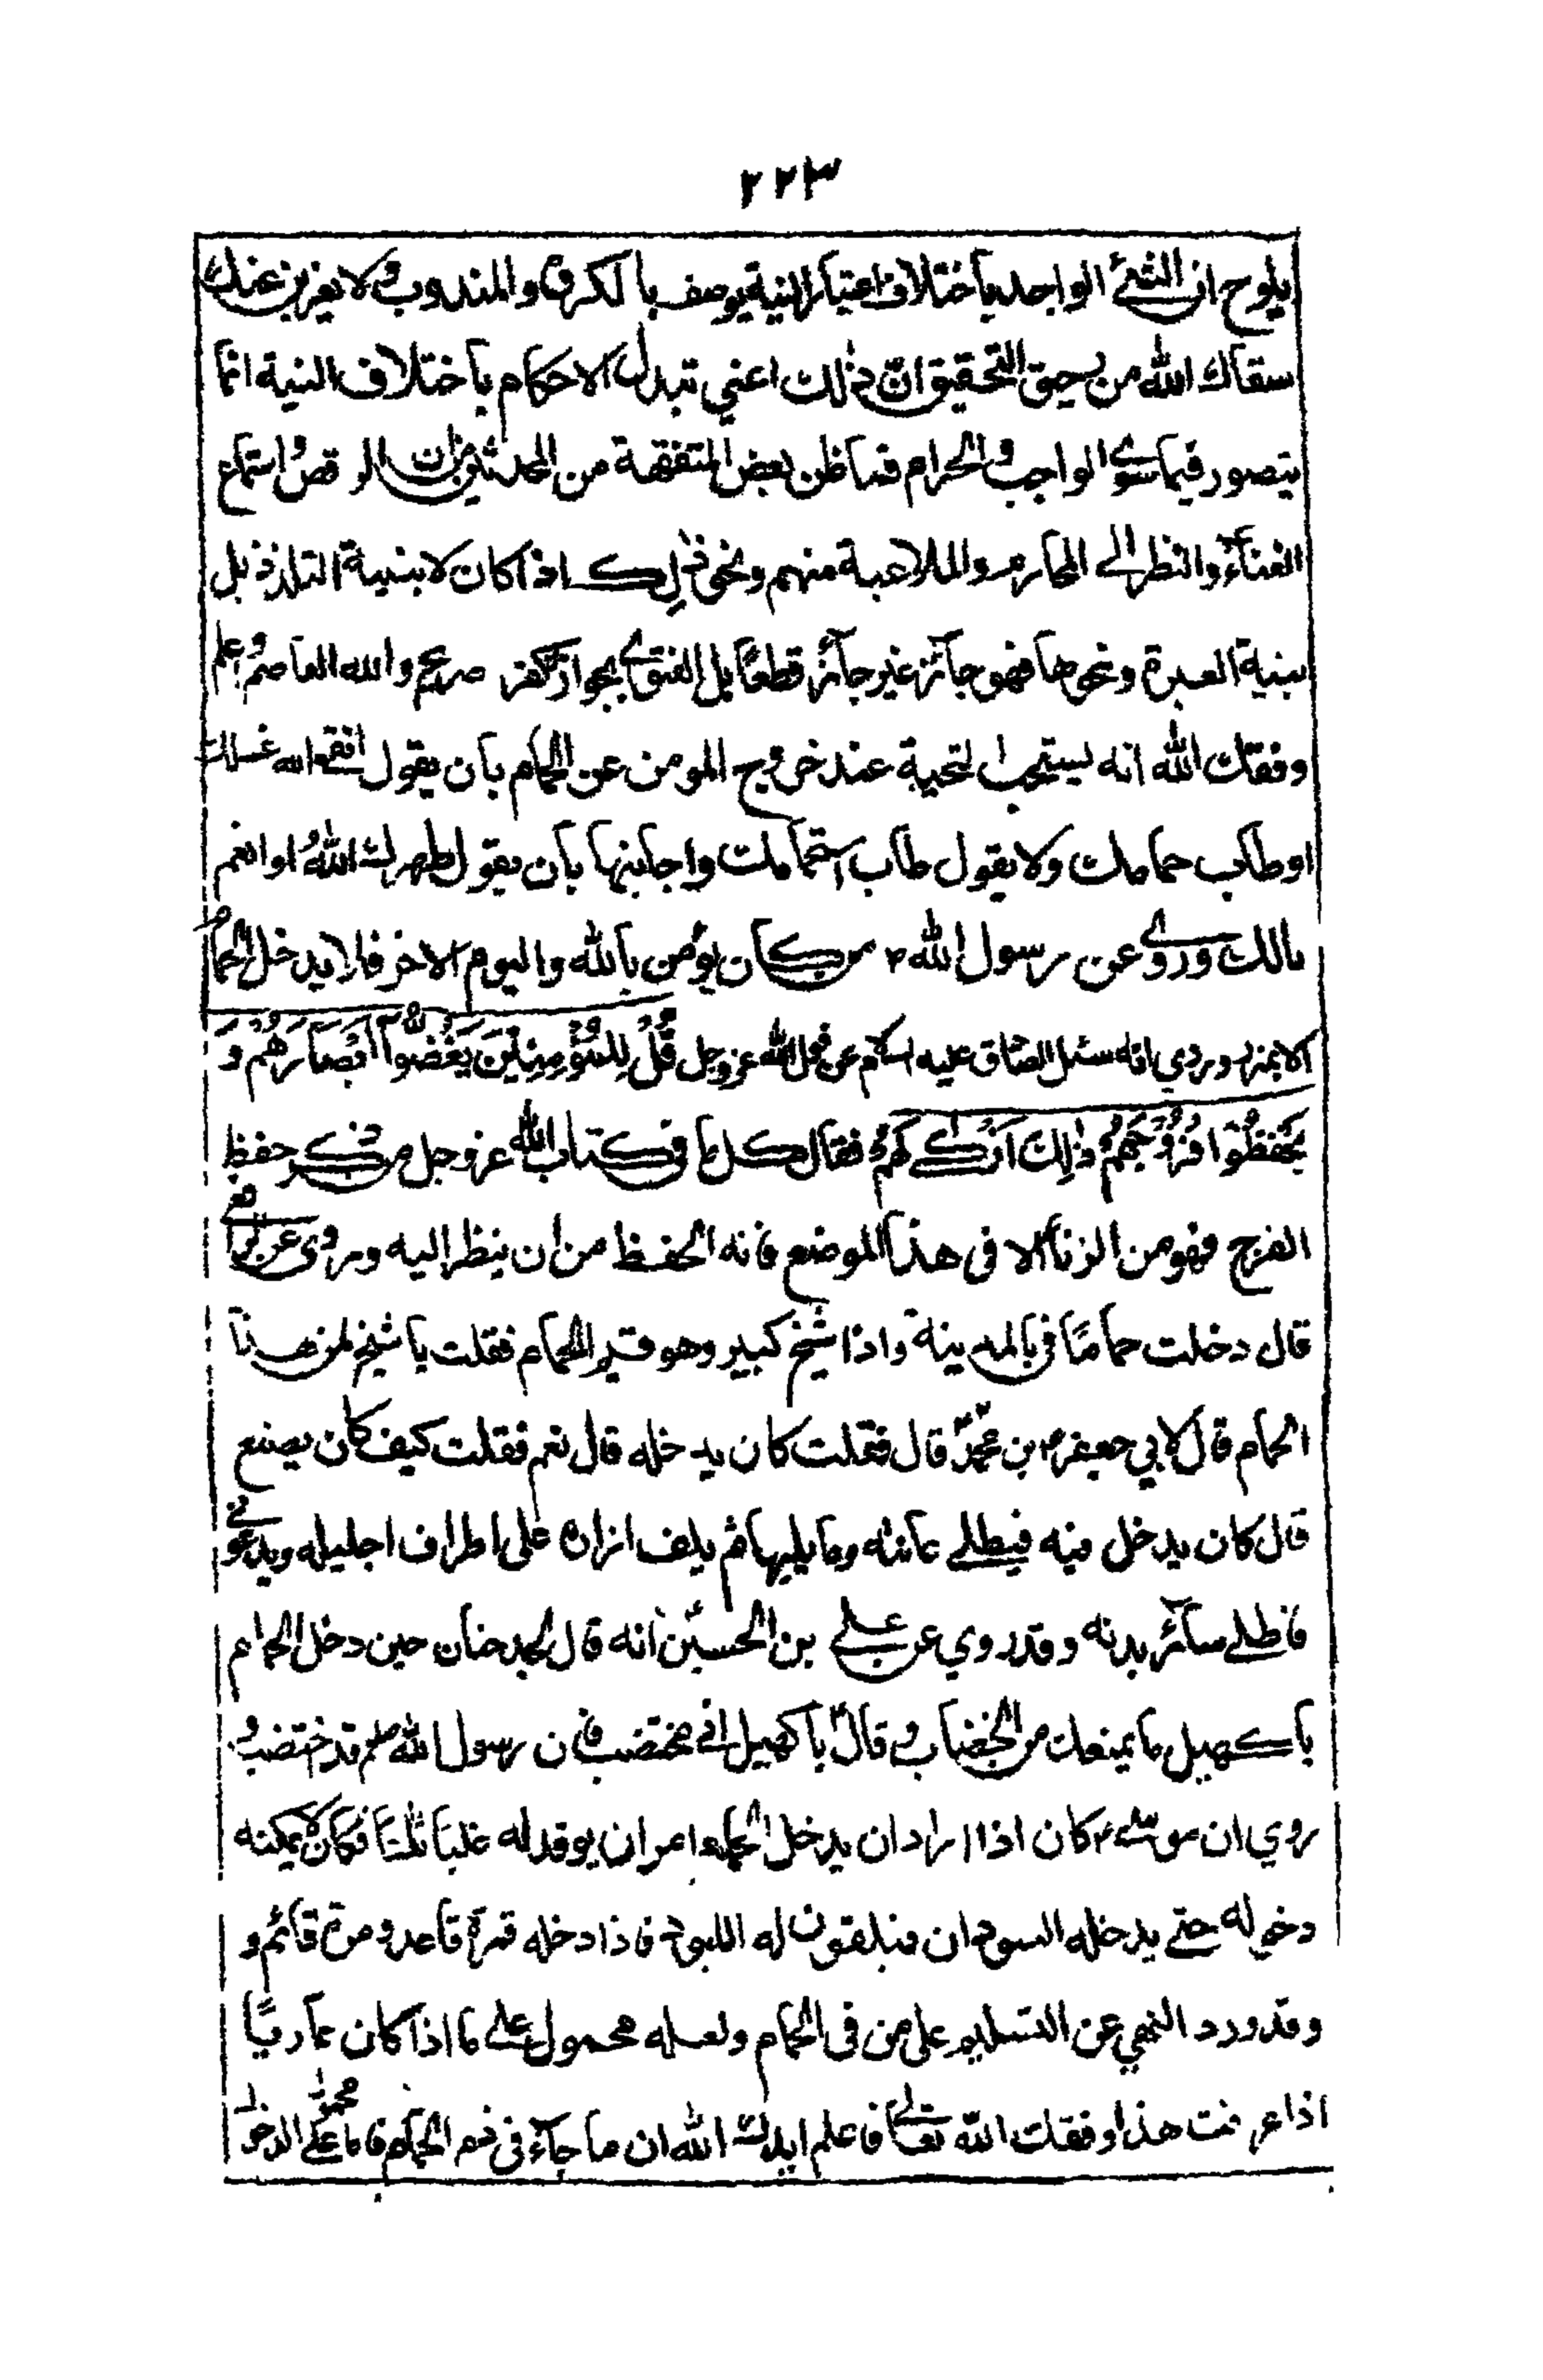 ٢٢٣
يلوح ان الشئ الواحد باختلاف اعتبار النية يوصف بالمكروه والمندوب ولا يغربن عنك
سقاك الله من رحيق التحقيق ان ذلك اعني تبدل الاحكام باختلاف النية انما
يتصور فيما سوى الواجب والحرام فما ظن بعض المتفقهة من المحدثين من ان الرقص واستماع
الغناء والنظر الى المحارم والملاعبة منهم ونحو ذلك اذا كان لا بنية التلذذ بل
بنية العبرة ونحوها فهو جائز غير جائز قطعاً بل الفتوى بجوازه كفر صريح والله العاصم واعلم
وفقك الله انه يستحب التحية عند خروج المومن عن الحمام بان يقول انقى الله غسلك
او طاب حمامك ولا يقول طاب استحمامك واجابتها بان يقول طهرك الله او انعم
بالك وروى عن رسول الله ص من كان يؤمن بالله واليوم الاخر فلا يدخل الحمام
الا بمئزر وروي انه سئل الصادق عليه السلام عن قول الله عز وجل قُلْ لِلْمُؤْمِنِيْنَ يَغُضُّوْا مِنْ اَبْصَارِهِمْ وَ
يَحْفَظُوْا فُرُوْجَهُمْ ذٰلِكَ اَزْكٰى لَهُمْ فقال كل ما في كتاب الله عز وجل من ذكر حفظ
الفرج فهو من الزنا الا في هذا الموضع فانه الحفظ من ان ينظر اليه وروى عن الرافعي
قال دخلت حماماً في بالمدينة واذا شيخ كبير وهو قيم الحمام فقلت يا شيخ لمن هذا
الحمام قال لابي جعفر م بن محمد قال فقلت كان يدخله قال نعم فقلت كيف كان يصنع
قال كان يدخل فيه فيطلي عانته وما يليها ثم يلف ازاره على اطراف احليله ويدعوني
فاطلي سائر بدنه وقد روي عن علي بن الحسين انه قال لجد حنان حين دخل الحمام
يا كهيل ما يمنعك من الخضاب وقال يا كهيل اني مختضب فان رسول الله صلعم قد اختضب و
روي ان موسى م كان اذا اراد ان يدخل الحمام امر ان يوقد له عليه ثلثا فكان لا يمكنه
دخوله حتى يدخله السودان فيلقون له اللبود فاذا دخله فمرة قاعد ومرة قائم و
وقد ورد النهي عن التسليم على من في الحمام ولعله محمول على ما اذا كان عارياً
اذا عرفت هذا وفقك الله تعالى فاعلم ايدك الله ان ما جاء في ذم الحمام فاما محمول على الدخول